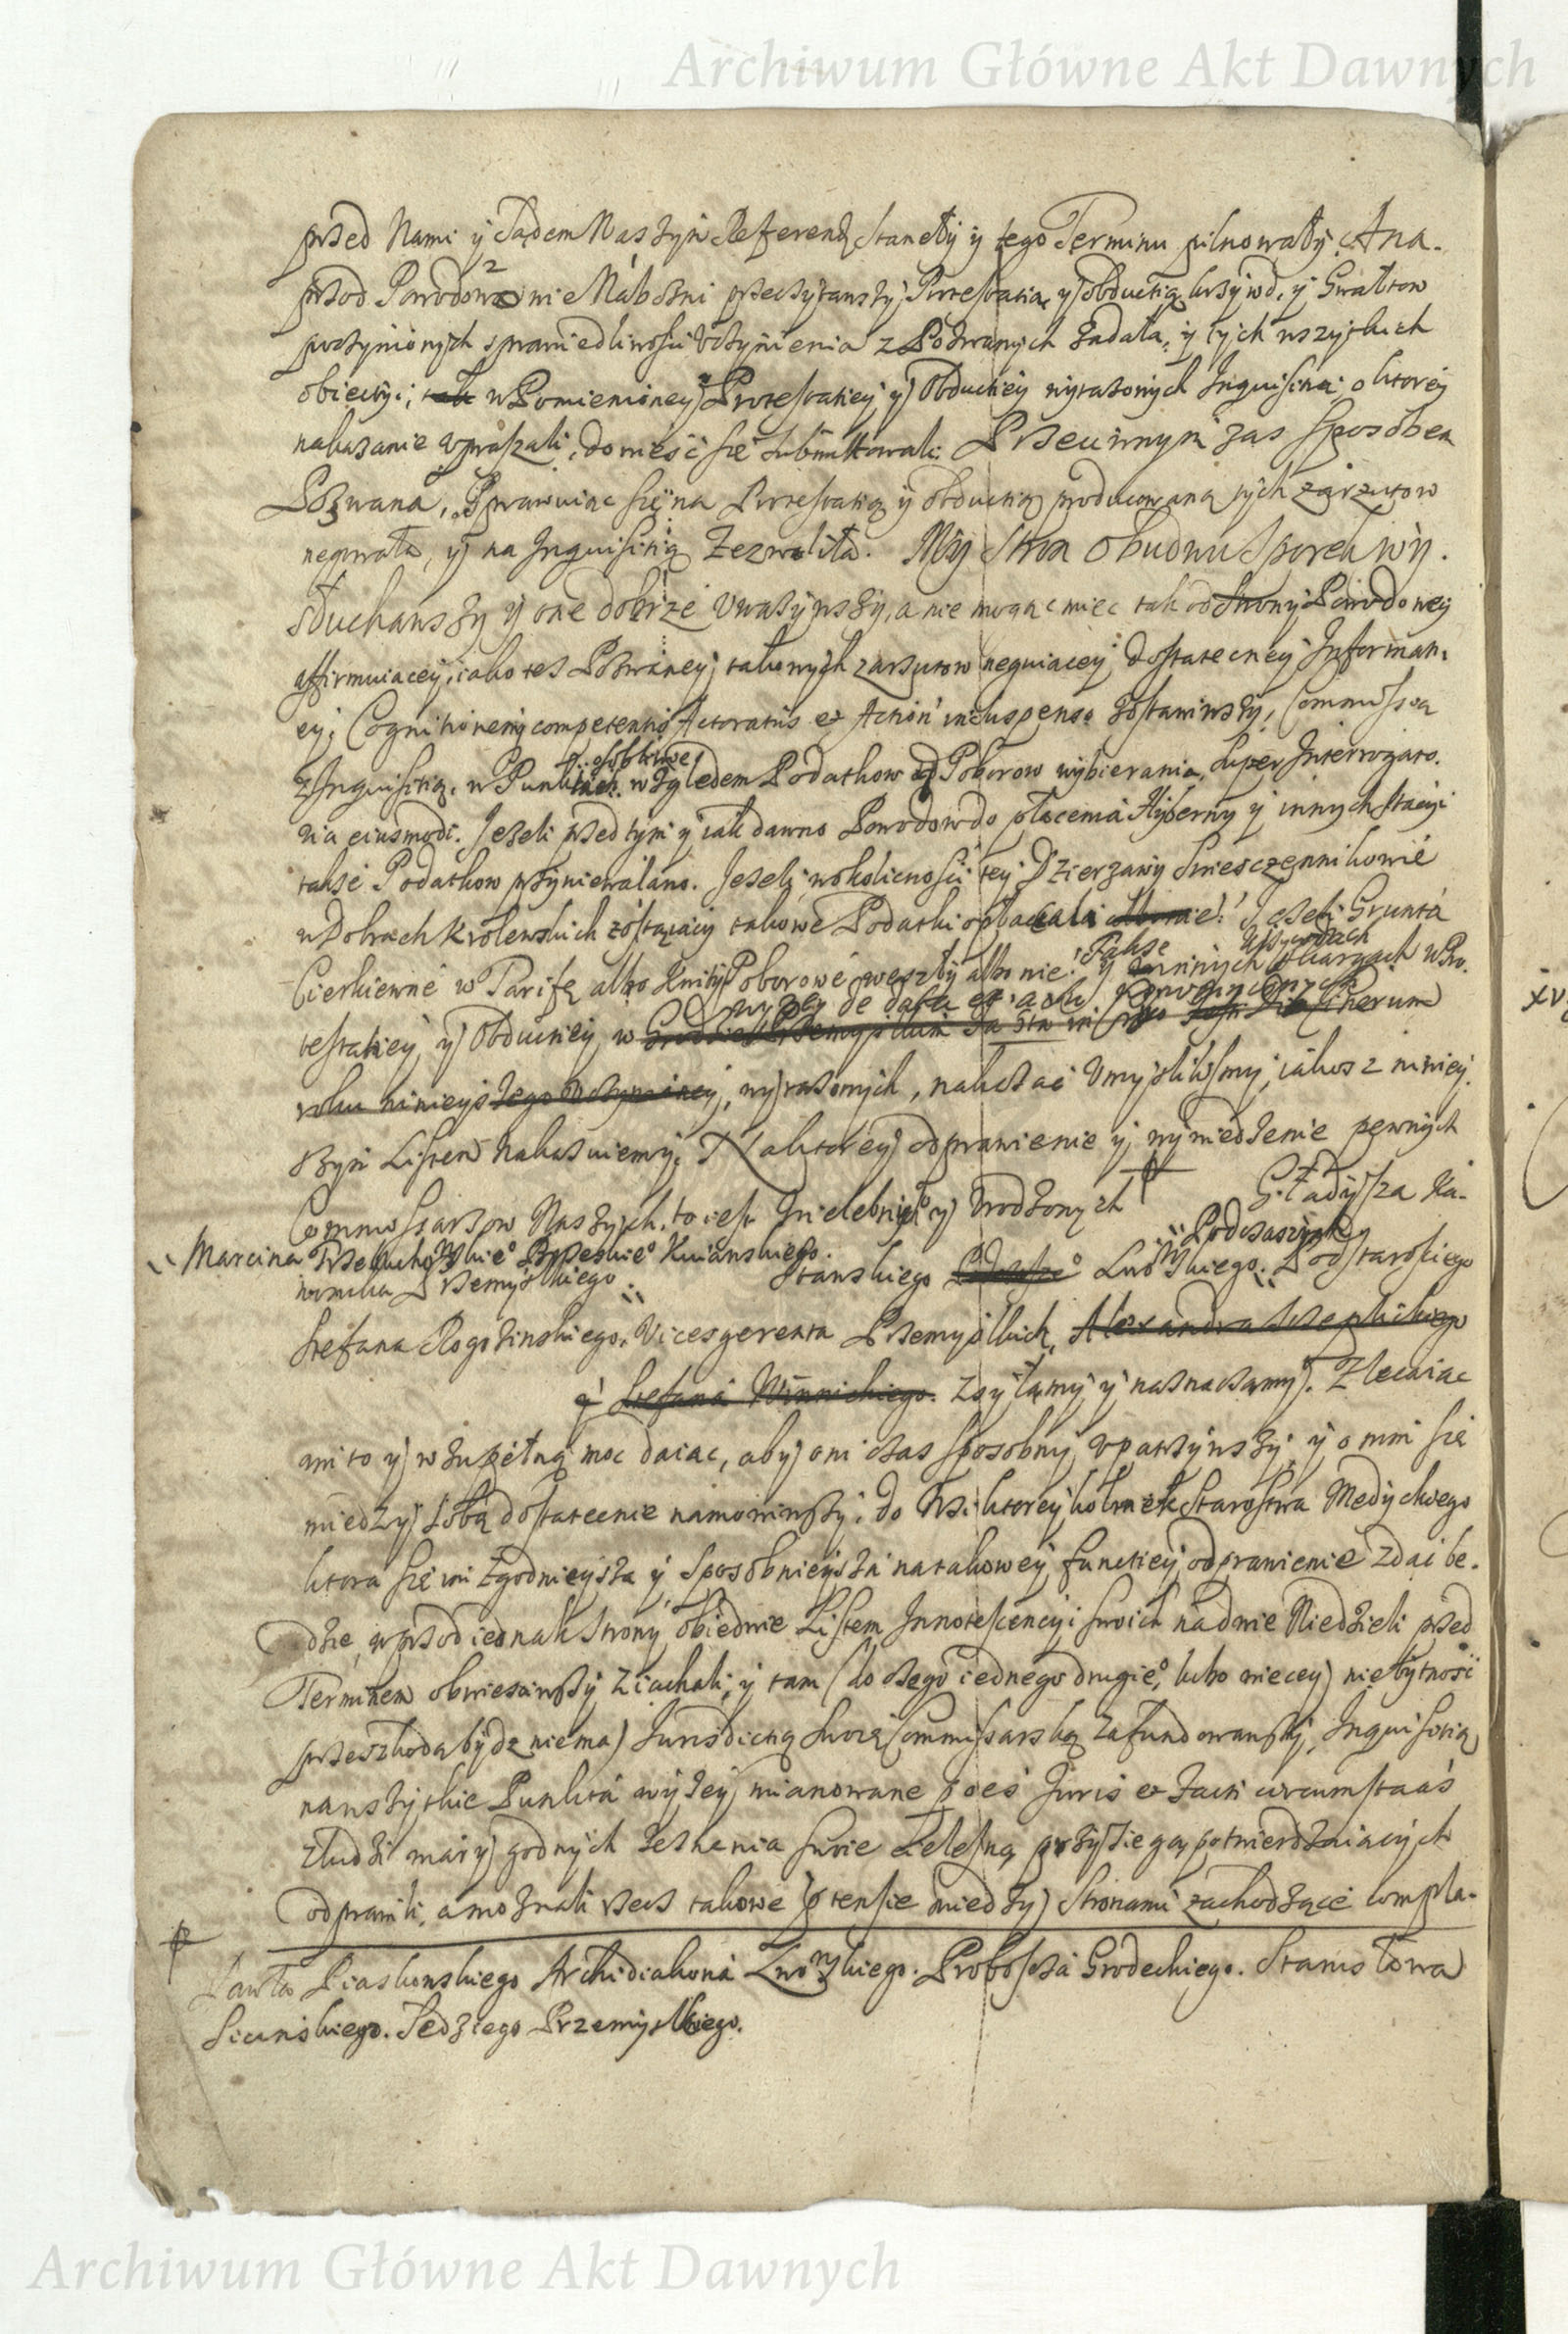 Archiwum Główne Akt Dawnych
przed Nami y Sądem Naszym Referend. stanęły y tego Terminu pilnowały. A na-
przod Powodowie Nabożni przeczytawszy Protestatią y obductią krzywd, y Gwałtow
poczynionych sprawiedliwości uczynienia z Pozwanych żądała, y tych wszystkich
obiectyi, tak w Pomienioney Protestatiey y Obductiey wyrażonych Inquisitiei, o ktorey
nakazanie upraszali, dowieść się submittowali. Przeciwnym zas sposobem
Pozwana, Sprawuiąc się na Protestatią y obductią producowaną tych zarzutow
negowała, y na Inquisitią zezwoliła. My Stron obudwu Sporow wy-
słuchawszy y one dobrze uważywszy, a nie mogąc miec tak od Strony Powodowey
affirmuiącey, iako tez Pozwaney takowych zarzutow neguiącey dostateczney Informat-
ey, Cognitionem competentis Actoratus et Action' in suspenso zostawiwszy, Commissią
z Inquisitią, w Punktach osobliwe względem Podatkow y Poborow wybierania, super Interrogato-
ria eiusmodi. Jeżeli przed tym y iak dawno Powodow do płacenia Hyberny y innych stacyi
także Podatkow przyniewalano. Jeżeli w okoliczności tey Dzierżawy Swieszczennikowie
w Dobrach Krolewskich zostaiący takowe Podatki opłacali albo nie? Jeżeli Grunta
Cierkiewne w Taryfę albo Kwity Poborowe weszły albo nie? Także y w innych krzywdach skargach w Pro-
wyżey de data et actu
testatiey y Obductiey w
roku ninieyszego wyrażonych, nakazać umyśliliśmy, iakoż z niniey-
szym Listem nakazuiemy. Na ktorey odprawienie y wywiedzenie pewnych
Commissarzow Naszych, to iest Wielebnych y Urodzonych Gładysza Ka-
Marcina
nonika Przemyslkiego Stanskiego Podczaszym Podstarosciego
Stefana Rogozinskiego, Vicesgerenta Przemyslkich, Alexandra
y Stefana Winnickiego. Zsyłamy y naznaczamy. Zlecaiąc
im to y w zupełną moc daiąc, aby oni czas sposobny upatrzywszy, y o nim się
między sobą dostatecznie namowiwszy, do Wsi ktorey kolwiek Starostwa Medyckiego
ktora się im zgodnieysza y sposobnieysza na takowey functiey odprawienie zdać bę-
dzie, wprzod iednak Strony obiedwie Listem Innotescencyi swoich na dwie Niedzieli przed
Terminem obwieściwszy ziachali, y tam (do czego iednego drugieo, lubo więcey niebytność
przeszkodą bydz niema) Jurisdictią swoią Commissarską zafundowawszy, Inquisitią
na wszytkie Punkta wyżey mianowane przes Juris et facti circumstaās
z ludzi wiary godnych zeznania swoie cielesną przysięgą potwierdzaiących
odprawili, a možnali rzecz takowe prtensie między Stronami zachodzące compla-
Pawła Piaskowskiego Archidiakona Lwowskiego. Proboszcza Grodeckiego. Stanisława
Siecinskiego. Sędziego Przemyslkiego.
Archiwum Główne Akt Dawnych